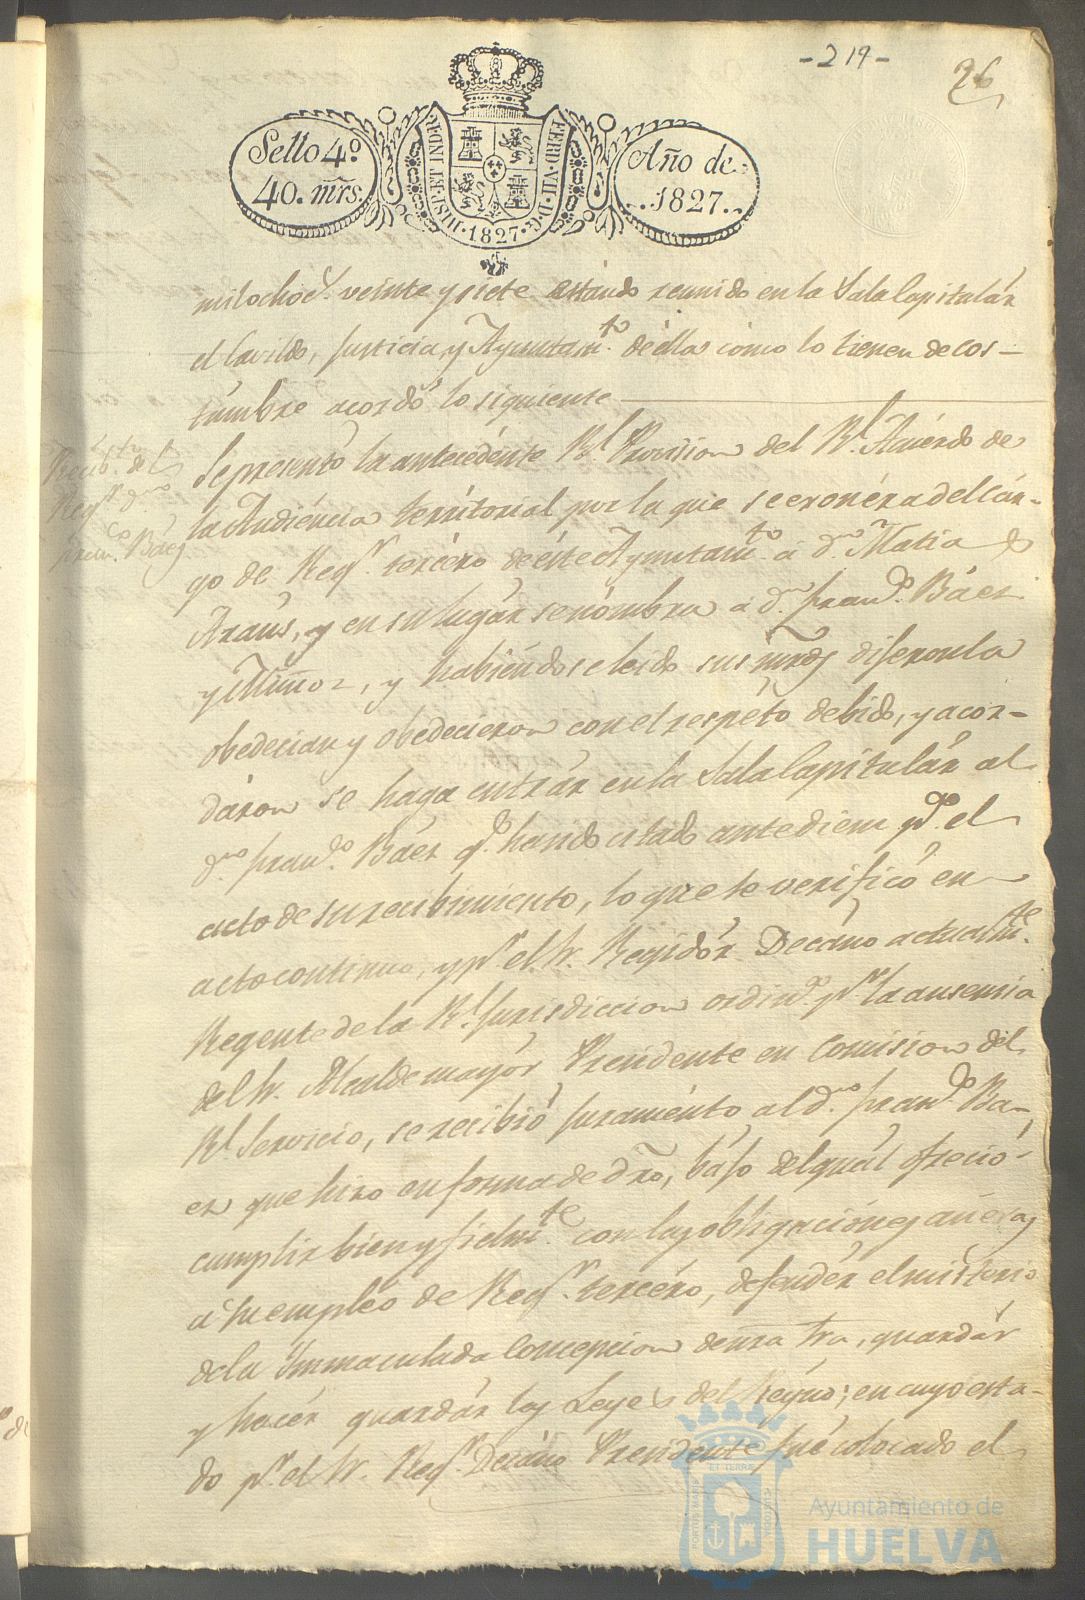 -219-
26
Sello 4º
40. mrs.
FERD·VII·D·G·
HISP·ET·IND·R·
·1827·
Año de
1827.
mil ochocs. veinte y siete estando reunido en la Sala Capitulár
el Cavildo, Justicia, y Ayuntamto. de élla como lo tienen de cos-
tumbre acordó lo siguiente
Recibto. del
Regr. dn.
Franco. Báez
Se presentó la antecedénte Rl. Provision del Rl. Acuérdo de
la Audiéncia territorial por la que se exonéra del cár-
go de Regr. tercéro de éste Ayuntamto. á dn. Matias
Araus, y en su lugár se nómbra á dn. Francо. Báez
y Muñoz, y habiéndose leido sus mrds. dijeron la
obedecian y obedecieron con el respéto debido, y acor-
dáron se haga entrár en la Sala Capitulár al
dn. Franco. Báez q. ha sido citado ante diem pa. el
acto de su recibimiento, lo que se verificó en
acto continuo, y pr. el Sr. Regidór Decáno actualmte.
Regente de la Rl. Jurisdiccion ordina. pr. la ausencia
del Sr. Alcalde mayór Presidente en Comision del
Rl. Servicio, se recibió juraménto al dn. Franco. Ba-
ez que hizo en forma de dro, bájo del quál ofreció
cumplir bien y fielmte. con las obligaciónes anéxas
á su empléo de Regr. tercéro, defendér el misterio
de la Inmaculada Concepcion de nra Sra, guardár
y hacér guardár las Leyes del Réyno; en cuyo esta-
do pr. el Sr. Regr. Decáno Presidente fué colocado el
PORTUS MARIS
ET TERRÆ
CUSTODIA
Ayuntamiento de
HUELVA